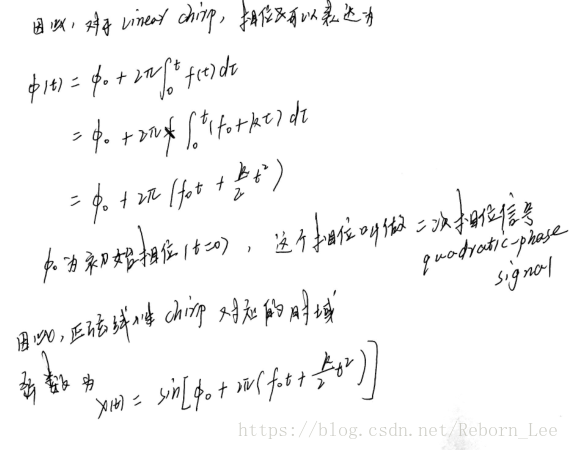 因此,对于Linear chirp,相位可以表达为
φ(t) = φ₀ + 2π∫₀ᵗ f(τ)dτ
= φ₀ + 2π ∫₀ᵗ(f₀+kτ)dτ
= φ₀ + 2π(f₀t + k/2 t²)
φ₀为初始相位(t=0),这个相位叫做二次相位信号
quadratic-phase
signal
因此,正弦线性chirp对应的时域
函数为
x(t) = sin[φ₀ + 2π(f₀t + k/2 t²)]
https://blog.csdn.net/Reborn_Lee